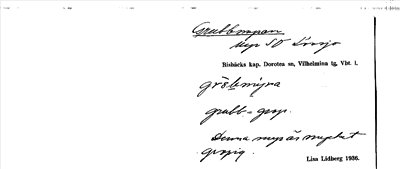 Grubbmyran
myr SO
Risbäcks kap. Dorotea sn, Vilhelmina tg, Vbt. l.
grubb = grop.
Denna myr är mycket
gropig.
Lisa Lidberg 1936.